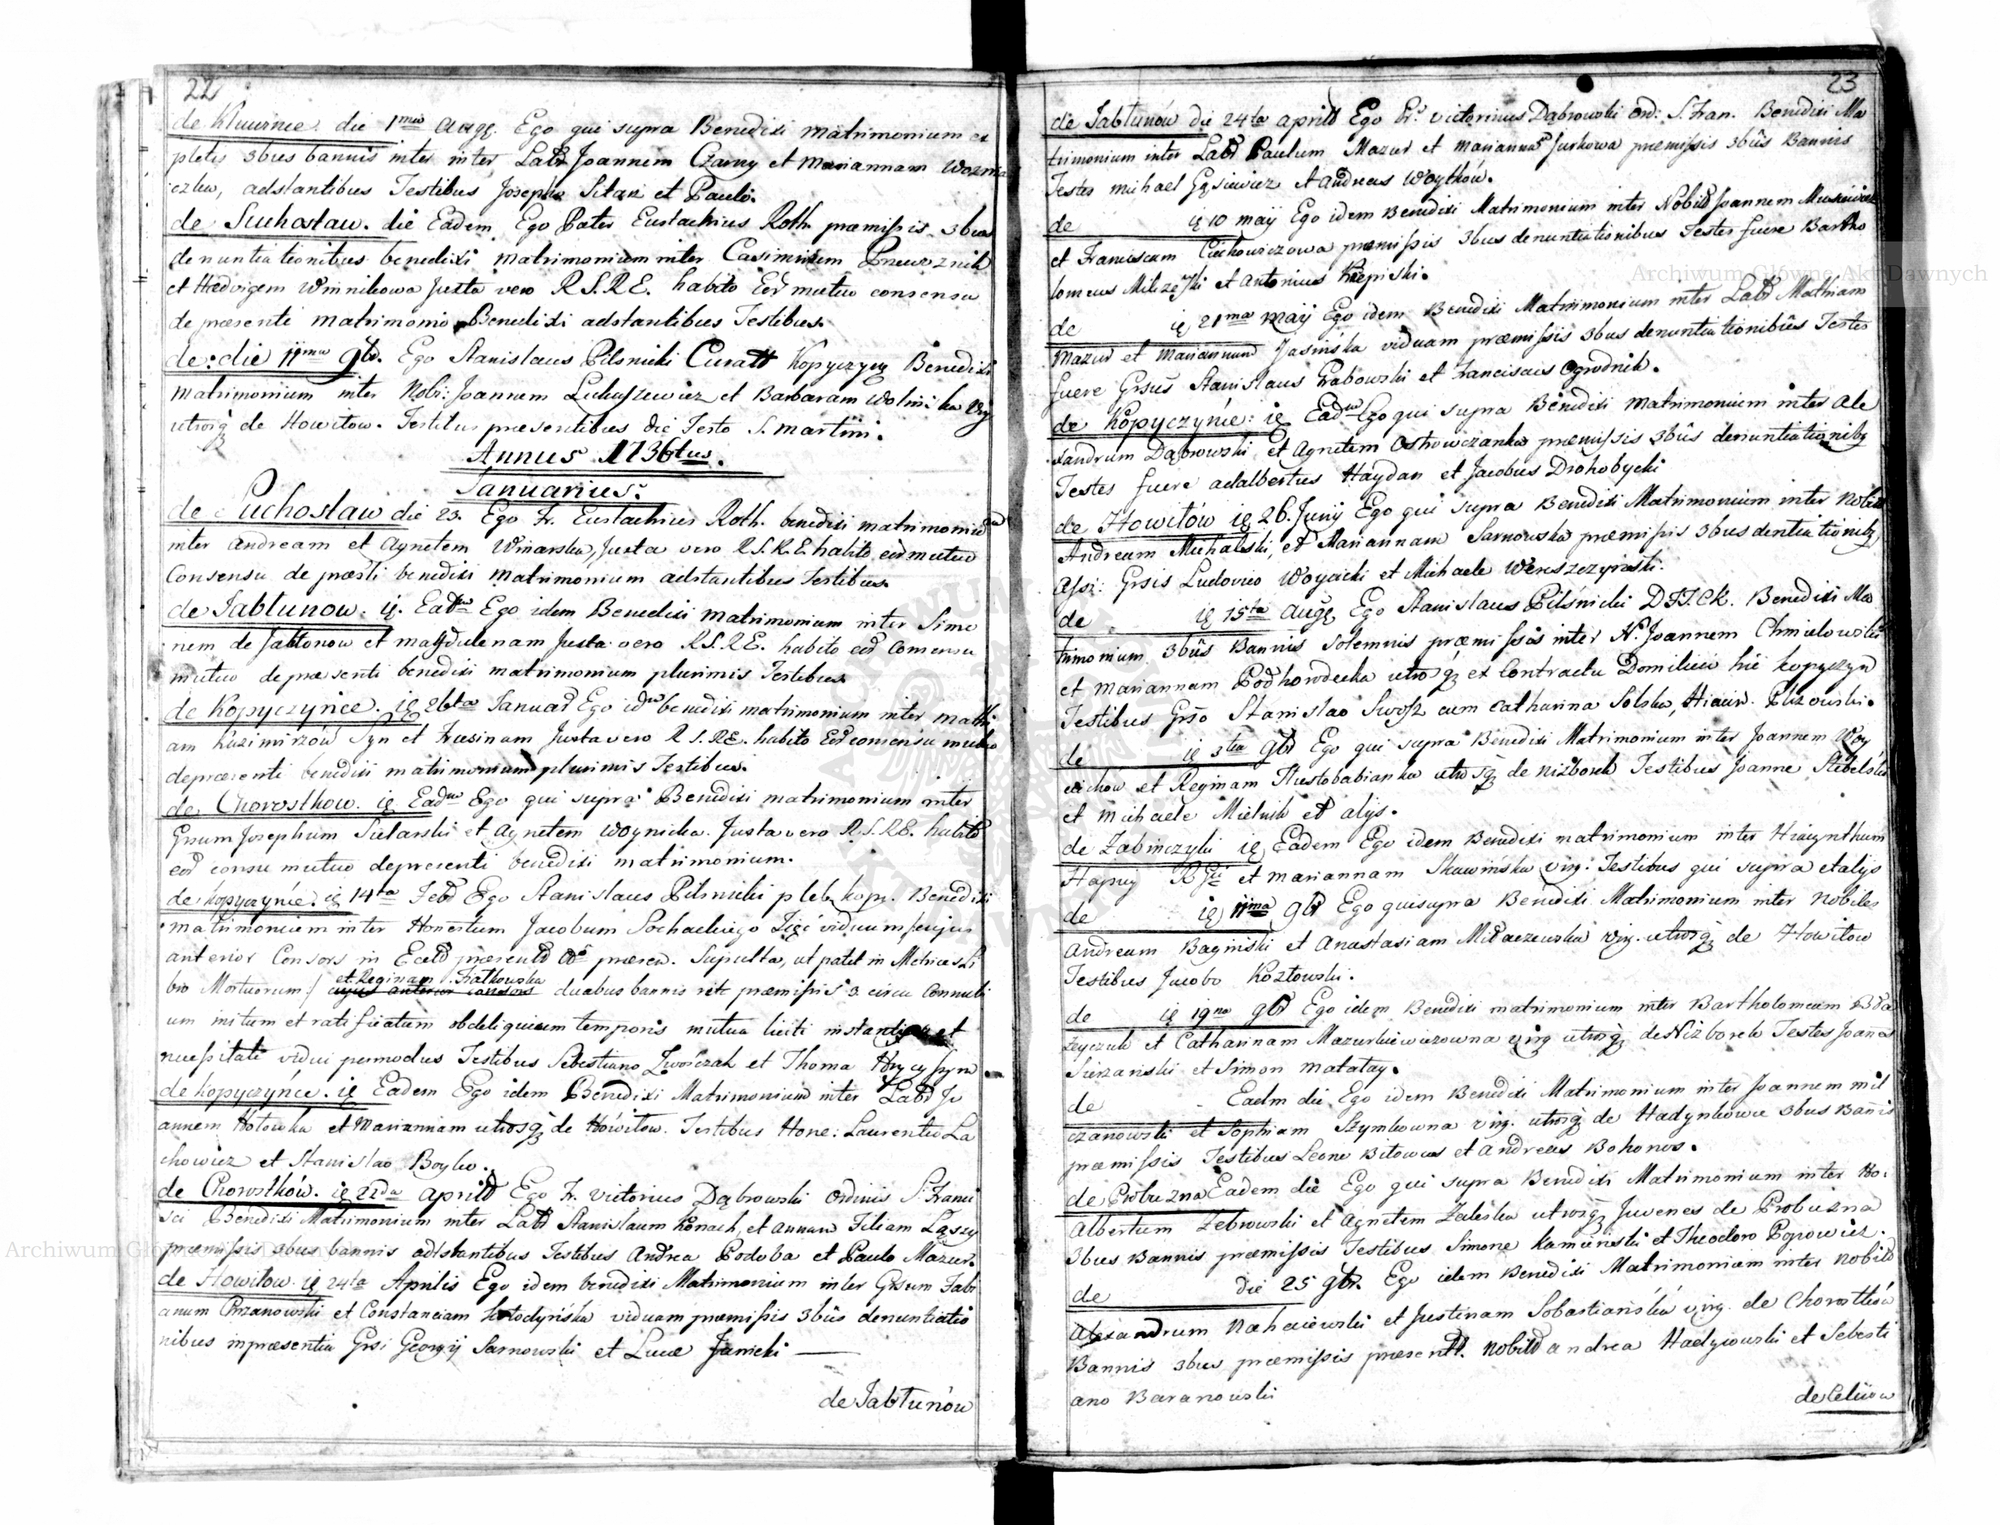 22
de Kluwince. die 1ma Augę. Ego qui supra Benedixi matrimonium co
pletis 3bus bannis inter inter Labd Joannem Czarny et Mariannam Wozni
czka, adstantibus Testibus Josepho Sitar et Paulo.
de Suchostaw. die Eadem Ego Pater Eustachius Roth. præmissis 3bus
denuntiationibus benedixi matrimonium inter Casimirum
et Hedvigem Winnikowa Juxta vero R.S.R.E. habito Eod mutuo consensu
de præsenti matrimonio Benedixi adstantibus Testibus.
de: die 11ma 9br. Ego Stanislaus Pilsnicki Curatt Kopyczyń Benedixi
matrimonium inter Nobi: Joannem Lukaszewicz et Barbaram Wolnicka
utrosq de Howitow. Testibus præsentibus die Festo S. Martini.
Annus 1736tus.
Januarius.
de Suchostaw die 23. Ego Fr. Eustachius Roth. benedixi matrimonium
inter Andream et Agnetem Winarska, Juxta vero R.S.R.E. habito, eod mutuo
Consensu de præsti benedixi matrimonium adstantibus Testibus.
de Jabtunow. ię. Eadem Ego idem Benedixi matrimonium inter Simo
nem de Jabtonow et Magdalenam Juxta vero R.S.R.E. habito eod Consensu
mutuo de præsenti benedixi matrimonium plurimis Testibus.
de Kopyczyńce. ię 26ta Januar Ego idem benedixi matrimonium inter Mathi
am Kazimirzów Syn et Fruzinam Juxta vero R.S.R.E. habito Eod consensu mutuo
depræsenti benedixi matrimonium plurimis Testibus.
de Chorostkow. ię Eadem Ego qui supra Benedixi matrimonium inter
Grsum Josephum Sielarski et Agnetem Woynicka. Juxta vero R.S.R.E. habito
eod consu mutuo depresenti benedixi matrimonium.
de kopyczyńce. ię 14ta Febr Ego Stanislaus Pilsnicki pleb. kop. Benedixi
matrimonium inter Honestum Jacobum Sochackiego viduum /cujus
anterior Consors in Eccld præsend præsen. Sepulta, ut patet in Metrices Li
bro Mortuorum/ et Reginam Fiatkowska duabus bannis rite præmissis 3 circa Connubi
um initum et ratificatum ob deliquium temporis mutua liciti instantia et
necessitate vidui permodus Testibus Sebestiano Zworszak et Thoma
de kopyczynce. ię Eadem Ego idem Benedixi Matrimonium inter Labd Jo
annem Hotowka et Mariannam utrosq de Howitow. Testibus Hone: Laurentio La
chowicz et Stanislao Boyko.
de Chorostków. ię 22da Aprild Ego Fr. Victorius Dąbrowski Ordinis S. Franci
sci Benedixi Matrimonium inter Labd Stanislaum Konach, et Annam Filiam Ląszy
præmissis 3bus bannis adstantibus Testibus Andrea Podoba et Paulo Mazur.
de Howitow. ię 24ta Aprilis Ego idem benedixi Matrimonium inter Grsum Fabi
anum Chrzanowski et Constanciam Kotodyńska viduam præmissis 3bus denuntiatio
nibus inpræsentia Grsi Georgij Sarnowski et Lucæ Janicki
de Jabtunów
23
de Jabtunów die 24ta aprild Ego Fr. Victorinus Dąbrowski Ord: S. Fran. Benedixi Ma
trimonium inter Labd Paulum Mazur et Mariannā Jurkowa præmissis 3bus Bannis
Testes Michael Gąsiewicz et Andreas Woytków.
de ię 10 maij Ego idem Benedixi Matrimonium inter Nobild Joannem
et Franciscam Ciechowiczowa præmissis 3bus denuntiationibus Testes fuere Bartho
lomeus Milczewski et Antonius Krępiski.
de ię 21ma Maij Ego idem Benedixi Matrimonium inter Labd Mathiam
Mazur et Mariannam Jasińska viduam præmissis 3bus denuntiationibus Testes
fuere Grsus Stanislaus Grabowski et Franciscus Ogrodnik.
de Kopyczyńce: ię Eadem Ego qui supra Benedixi Matrimonium inter Ale
xandrum Dąbrowski et Agnetem Ostrowczanka præmissis 3bus denuntiationibq
Testes fuere Adalbertus Haydan et Jacobus Drohobycki
de Howitów ię 26. Junij Ego qui supra Benedixi Matrimonium inter Nobild
Andream Michalski, et Mariannam Sarnowska præmissis 3bus dentiationibq
Assi: Grsis Ludovico Woyacki et Michaele Wereszczynski.
de ię 15ta Augę Ego Stanislaus Pilśnicki D.F.F.C.K. Benedixi Ma
trimonium 3bus Bannis solemnis præmissis inter N. Joannem Chmielowski
et Mariannam Podhorodecka utrosq ex Contractu Domicilio hic kopyczyn
Testibus Grso Stanislao Swosz cum Catharina Solska, Hiacin. Pluzowski.
de ię 3tia 9br Ego qui supra Benedixi Matrimonium inter Joannem Woy
ciechow et Reginam Ttustobabianka utrosq de Nizborek Testibus Joanne Stebelski
et Michaele Mielnik et alijs.
de Zabinczyki ię Eadem Ego idem Benedixi matrimonium inter Hiacynthum
Hajnij et Mariannam Skawińska virg: Testibus qui supra et alijs
de ię 11ma 9br Ego quisupra Benedixi Matrimonium inter Nobiles
Andream Baginski et Anastasiam Mitaczewska virg. utrosq de Howitow
Testibus Jacobo Koztowski.
de ię 19na 9br Ego idem Benedixi matrimonium inter Bartholomeum
et Catharinam Mazurkiewiczowna virg utrosq de Nizborek Testes Joanes
Surzanski et Simon Matatay.
de Eadm die Ego idem Benedixi Matrimonium inter Joannem Mil
czanowski et Sophiam Szymkowna virg. utrosq de Hadynkowce 3bus Banis
præmissis Testibus Leone Bitowus et Andreas Bohonos.
de Probuzna Eadem die Ego qui supra Benedixi Matrimonium inter Ho:
Albertum Zebrowski et Agnetem Zaleska utrosq Juvenes de Probuzna
3bus Bannis præmissis Testibus Simone Kaminski et Theodoro Popowicz.
de die 25 9br. Ego idem Benedixi Matrimonium inter Nobild
Alexandrum Nahaiewski et Justinam Sobastiańska virg. de Chorostków
Bannis 3bus præmissis præsentt. Nobild Andrea Hadziowski et Sebesti
ano Baranowski
de Celiiow
Archiwum Główne Akt Dawnych
Archiwum Główne Akt Dawnych